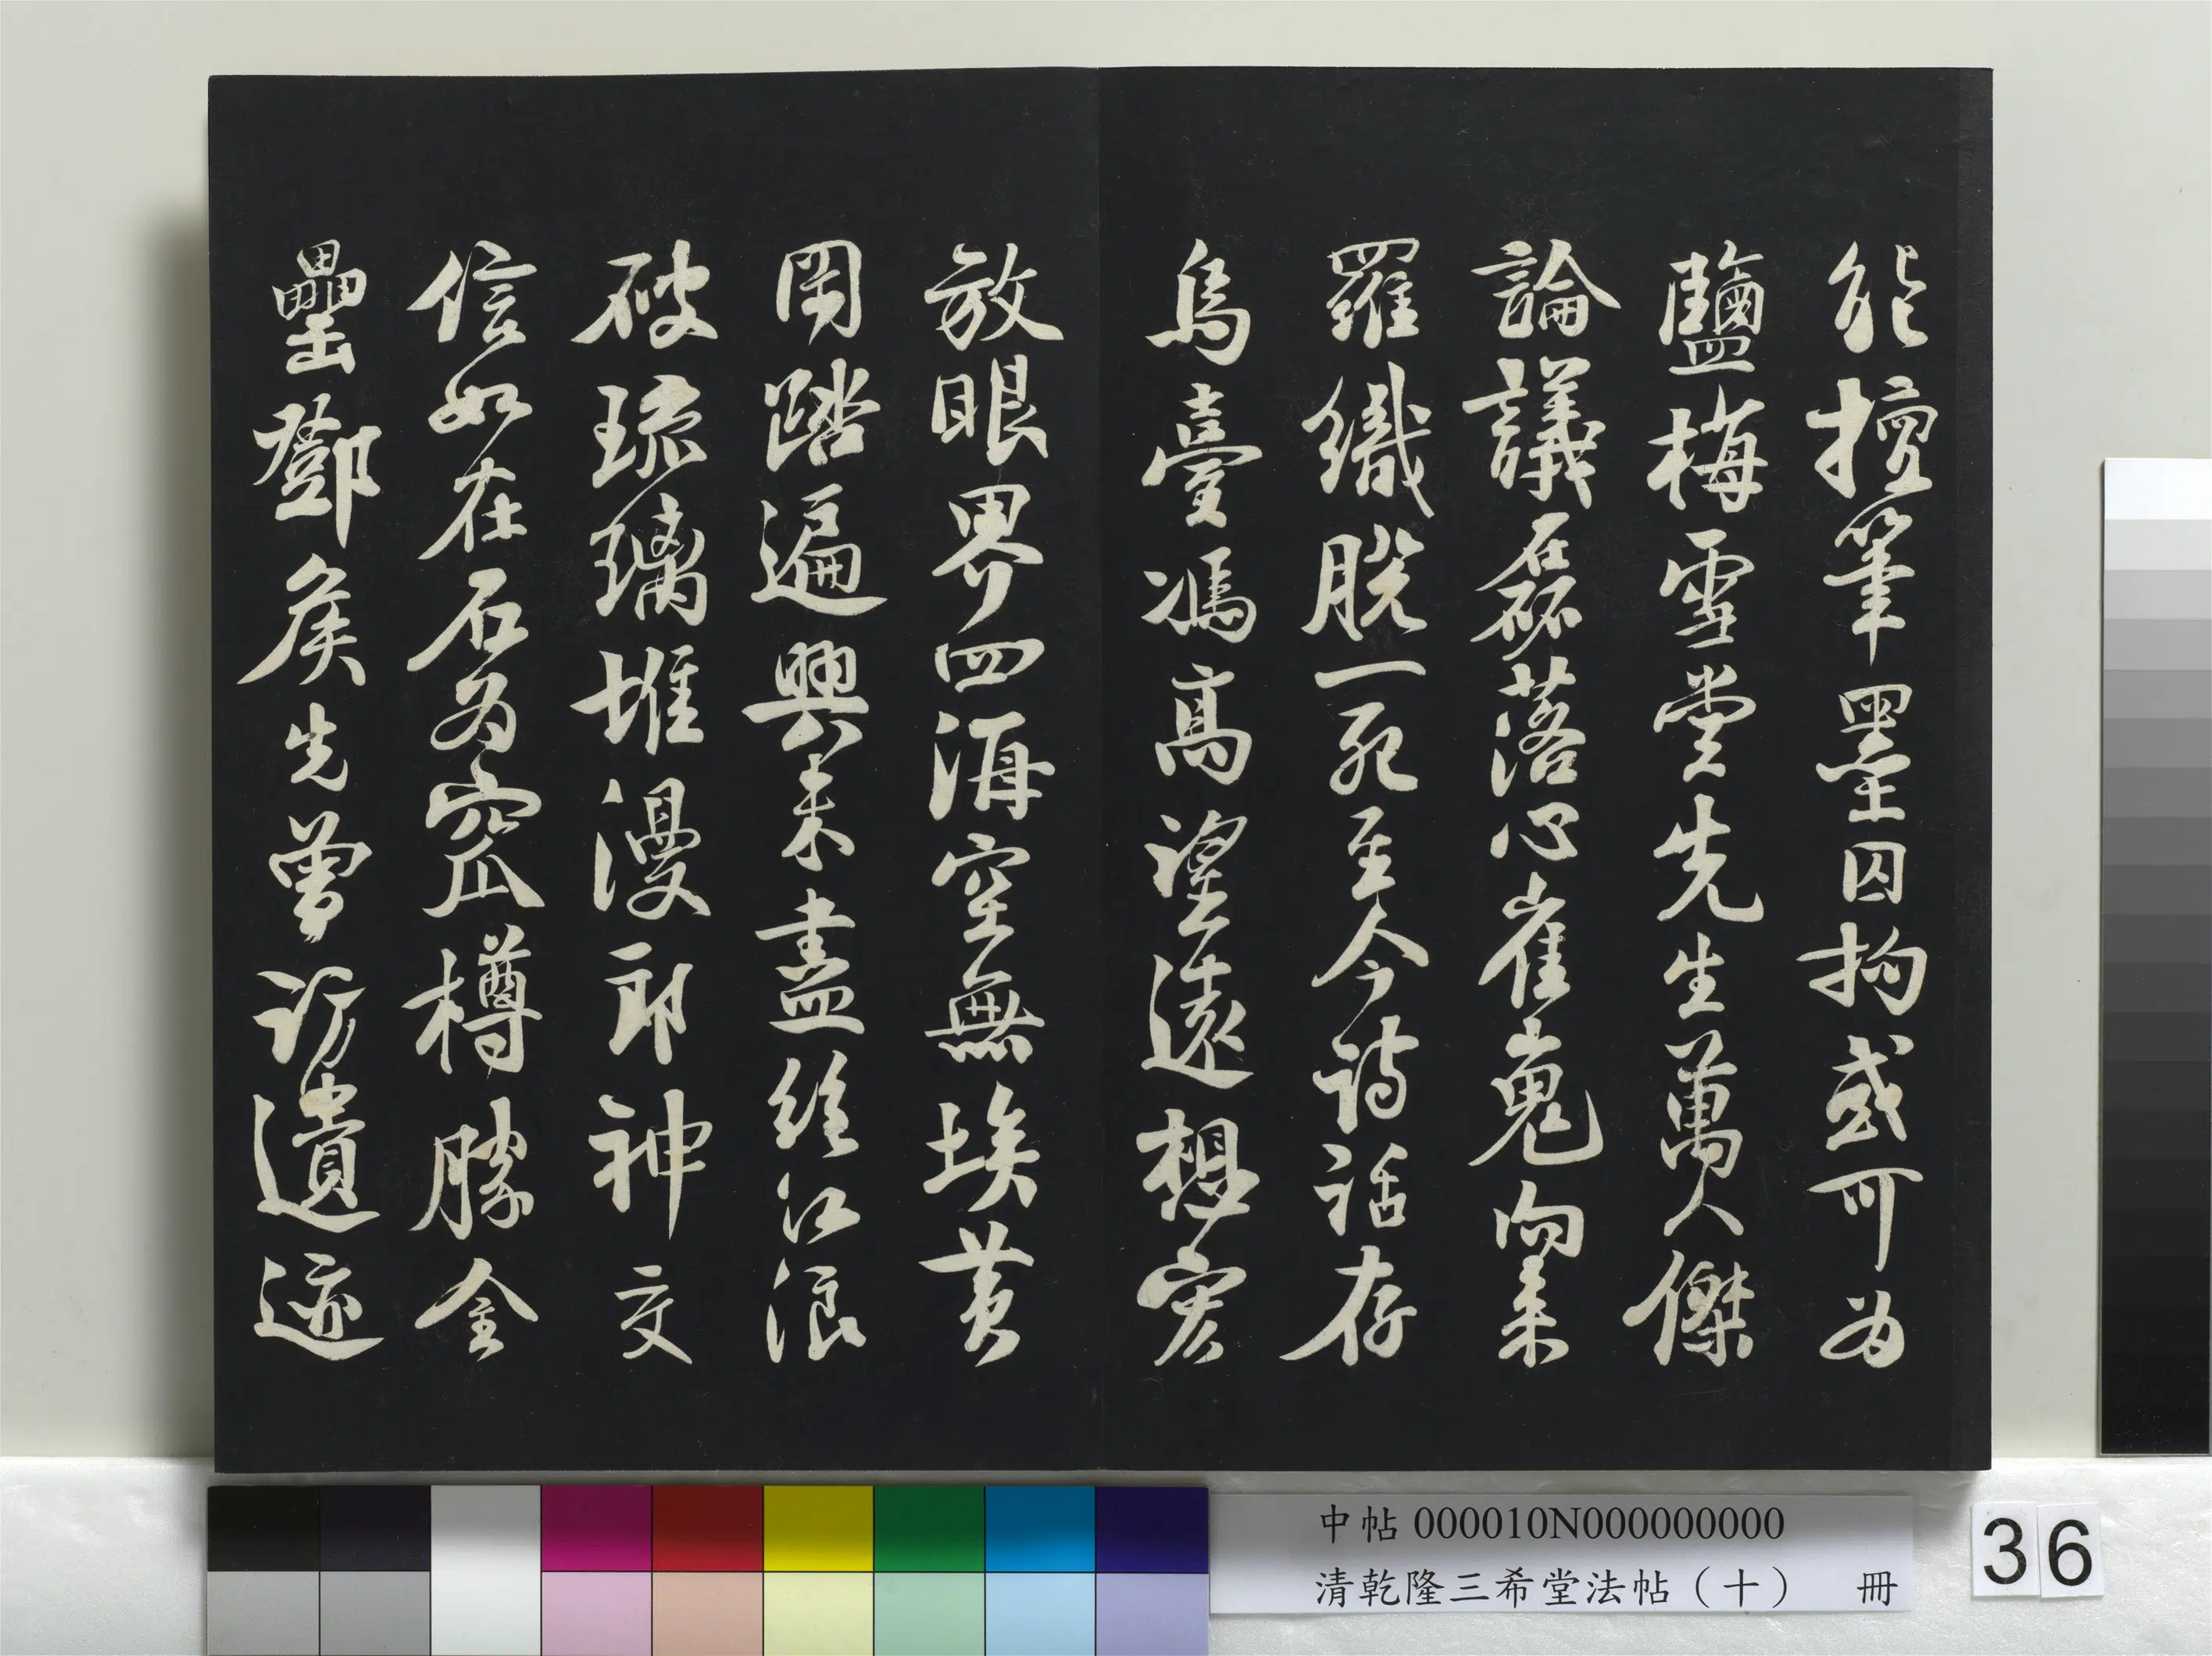 能擅筆墨囚拘或可为
鹽梅雪堂先生萬人傑
論議磊落心崔嵬向來
羅織脫一死至今詩話存
烏臺馮高望遠想宏
放眼界四海空無埃黃
岡踏遍興未盡絕江浪
破琉璃堆漫郎神交
信如在石为窊樽勝金
罍鄧侯先曾訪遺迹
中帖 000010N000000000
清乾隆三希堂法帖（十） 冊
36